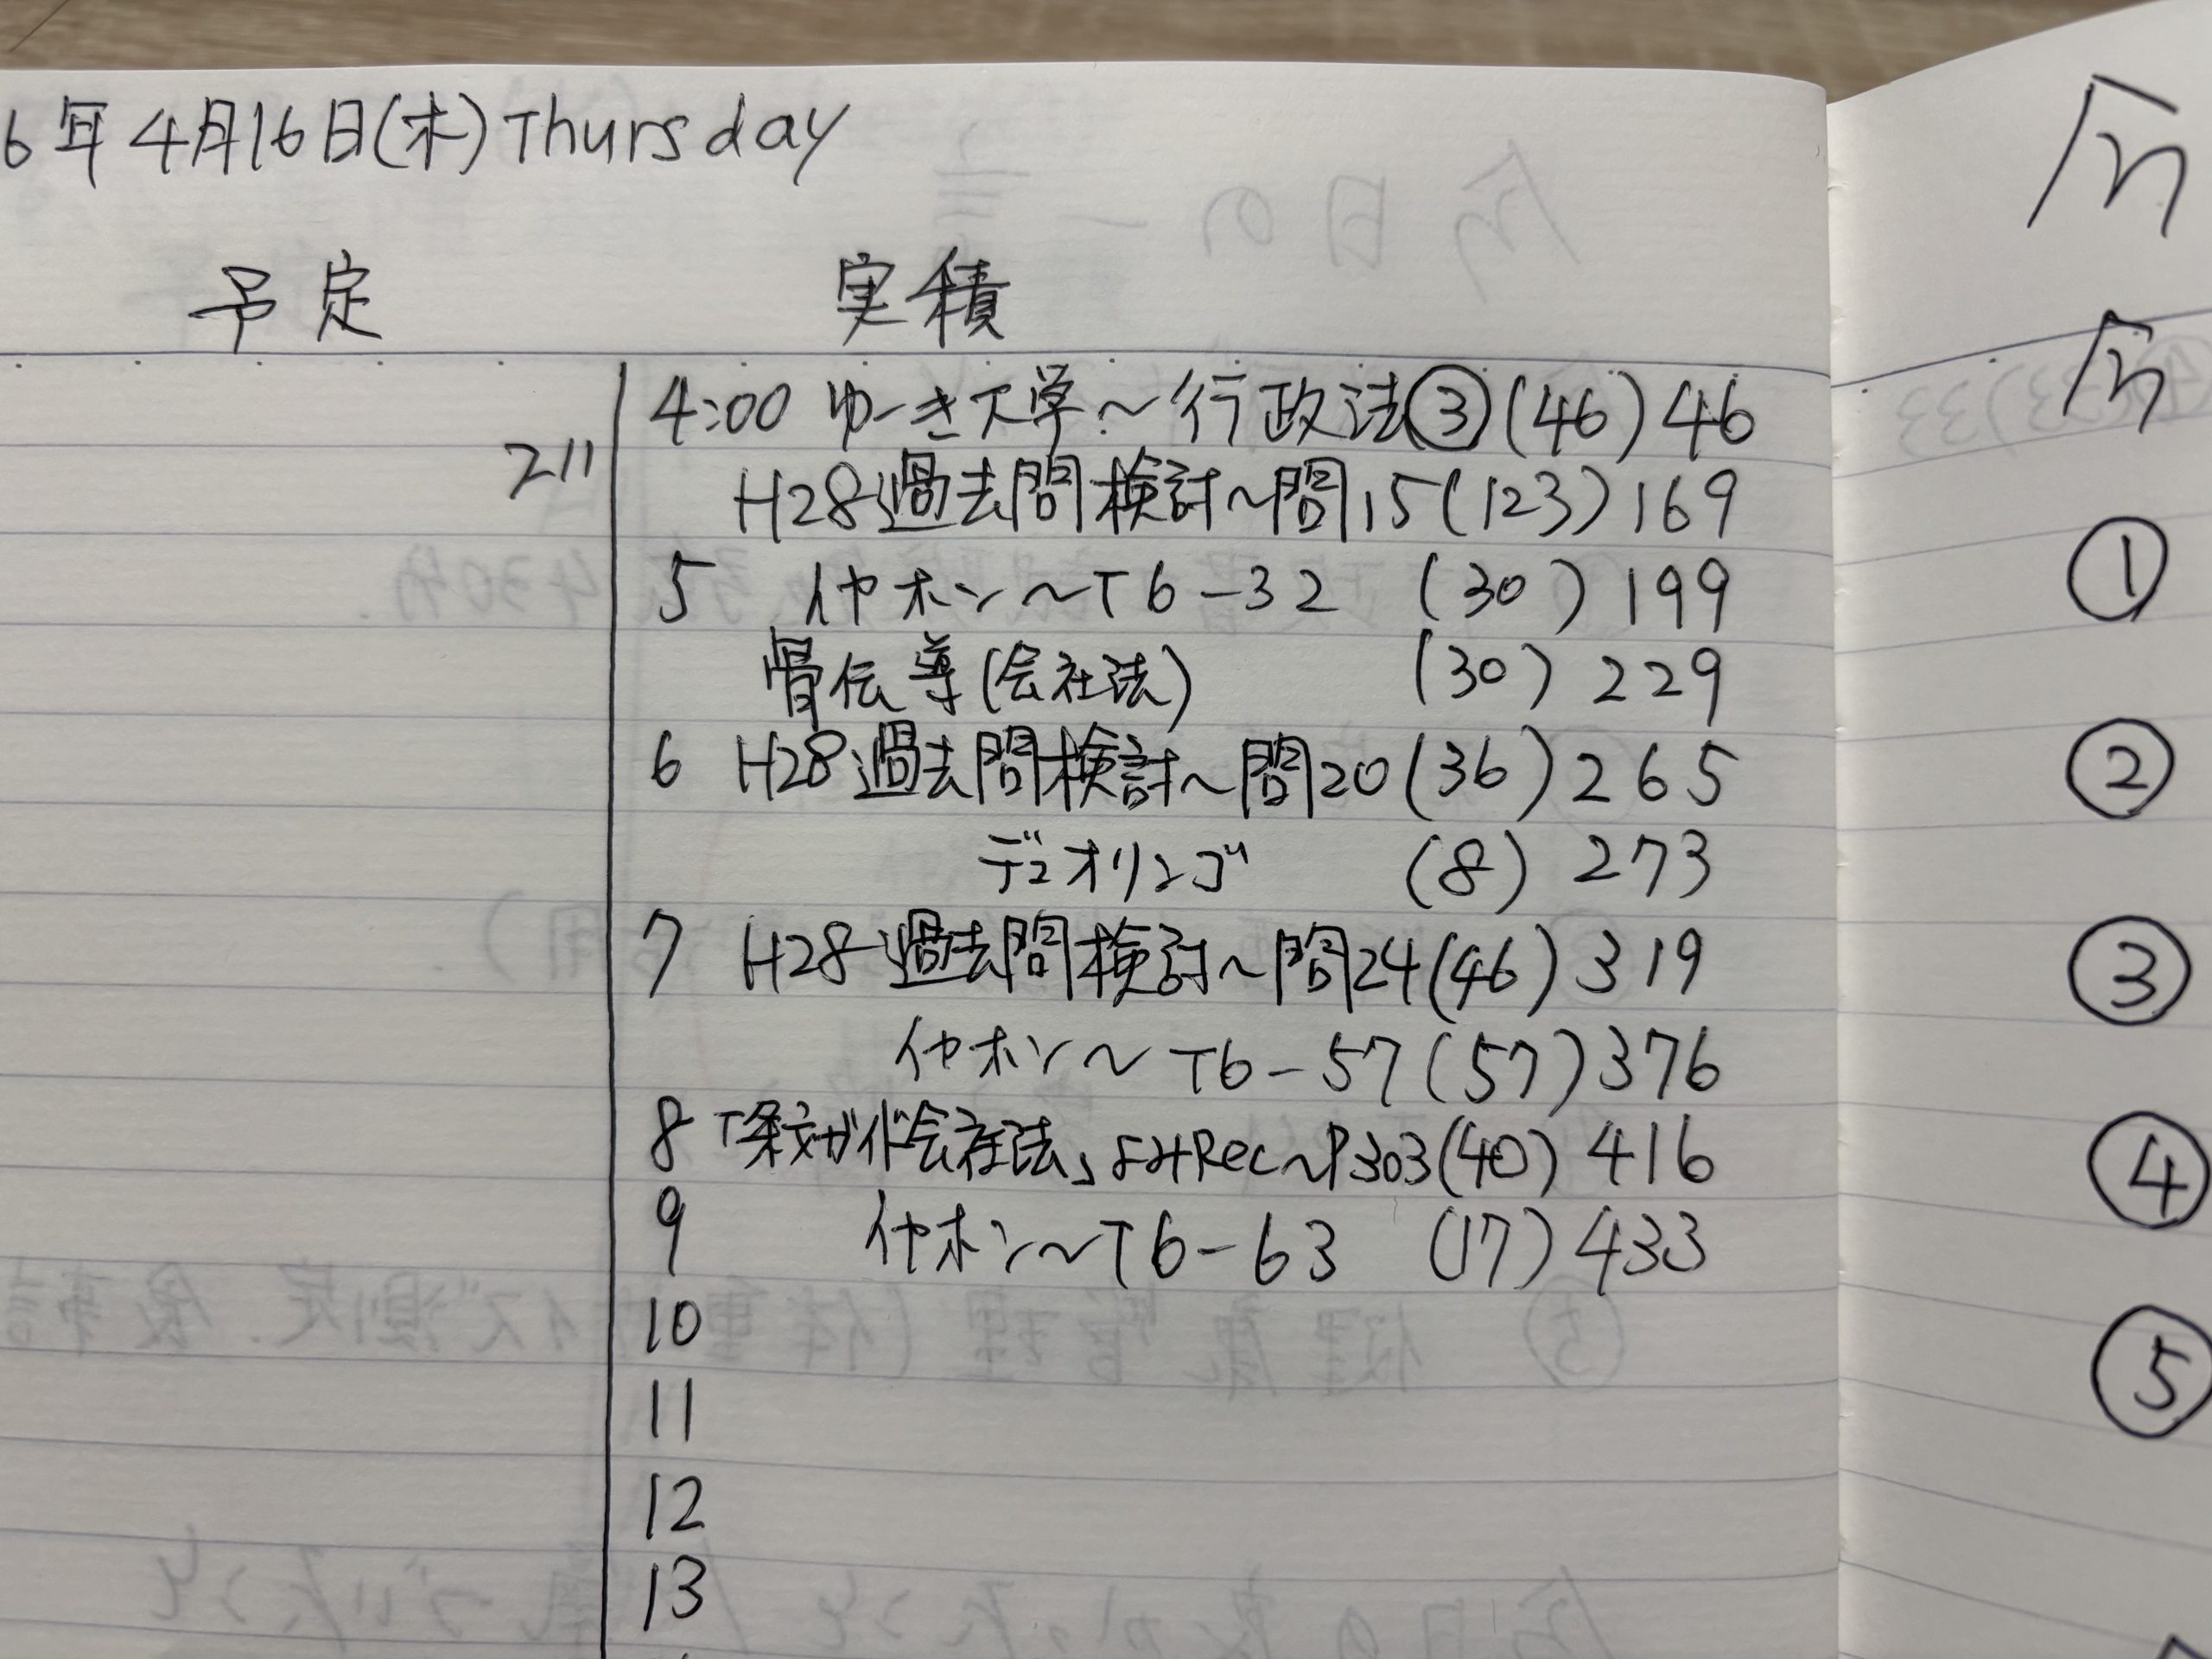 6年4月16日(木)Thursday
予定 実積
4:00 ゆーき大学~行政法③(46)46
211
H28過去問検討~問15(123)169
5 イヤホン~T6-32 (30)199
骨伝導(会社法) (30)229
6 H28過去問検討~問20(36)265
デュオリンゴ (8)273
7 H28過去問検討~問24(46)319
イヤホン~T6-57(57)376
8「条文ガイド会社法」よみRec~P303(40)416
9 イヤホン~T6-63 (17)433
10
11
12
13
今
今
①
②
③
④
⑤